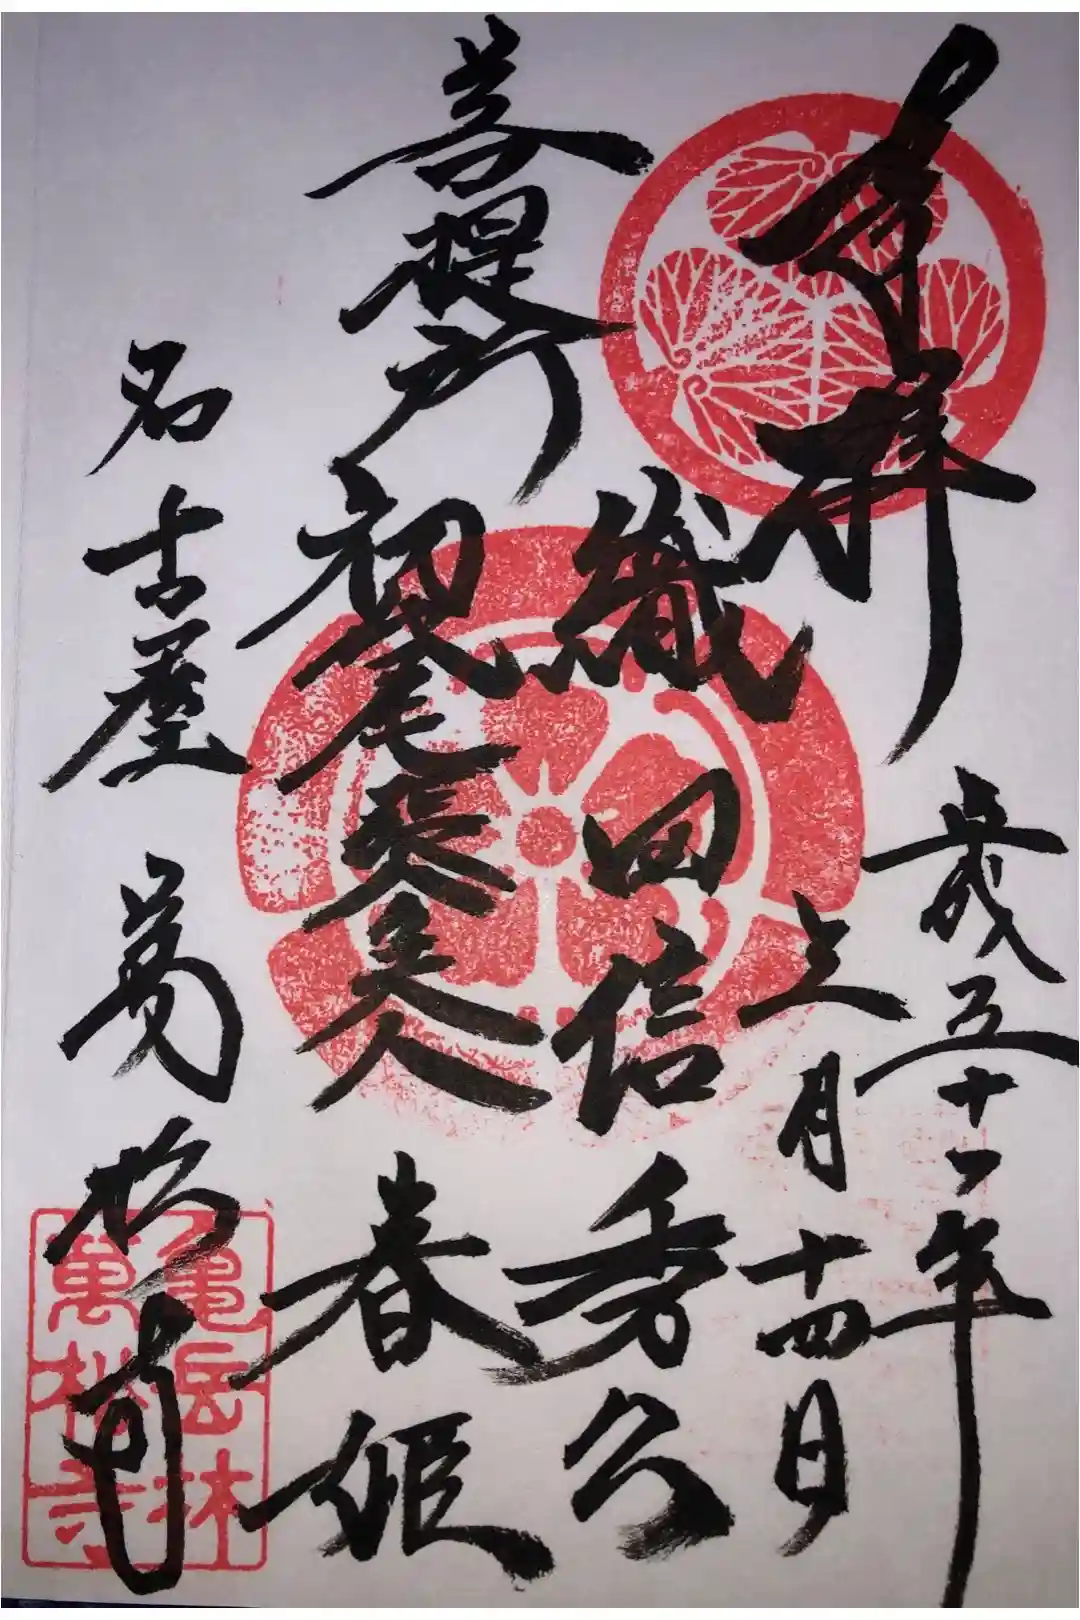 奉拝
平成三十一年
三月十四日
織田信秀公
菩提所
初尾張夫人 春姫
名古屋 萬松寺
亀岳林
萬松寺